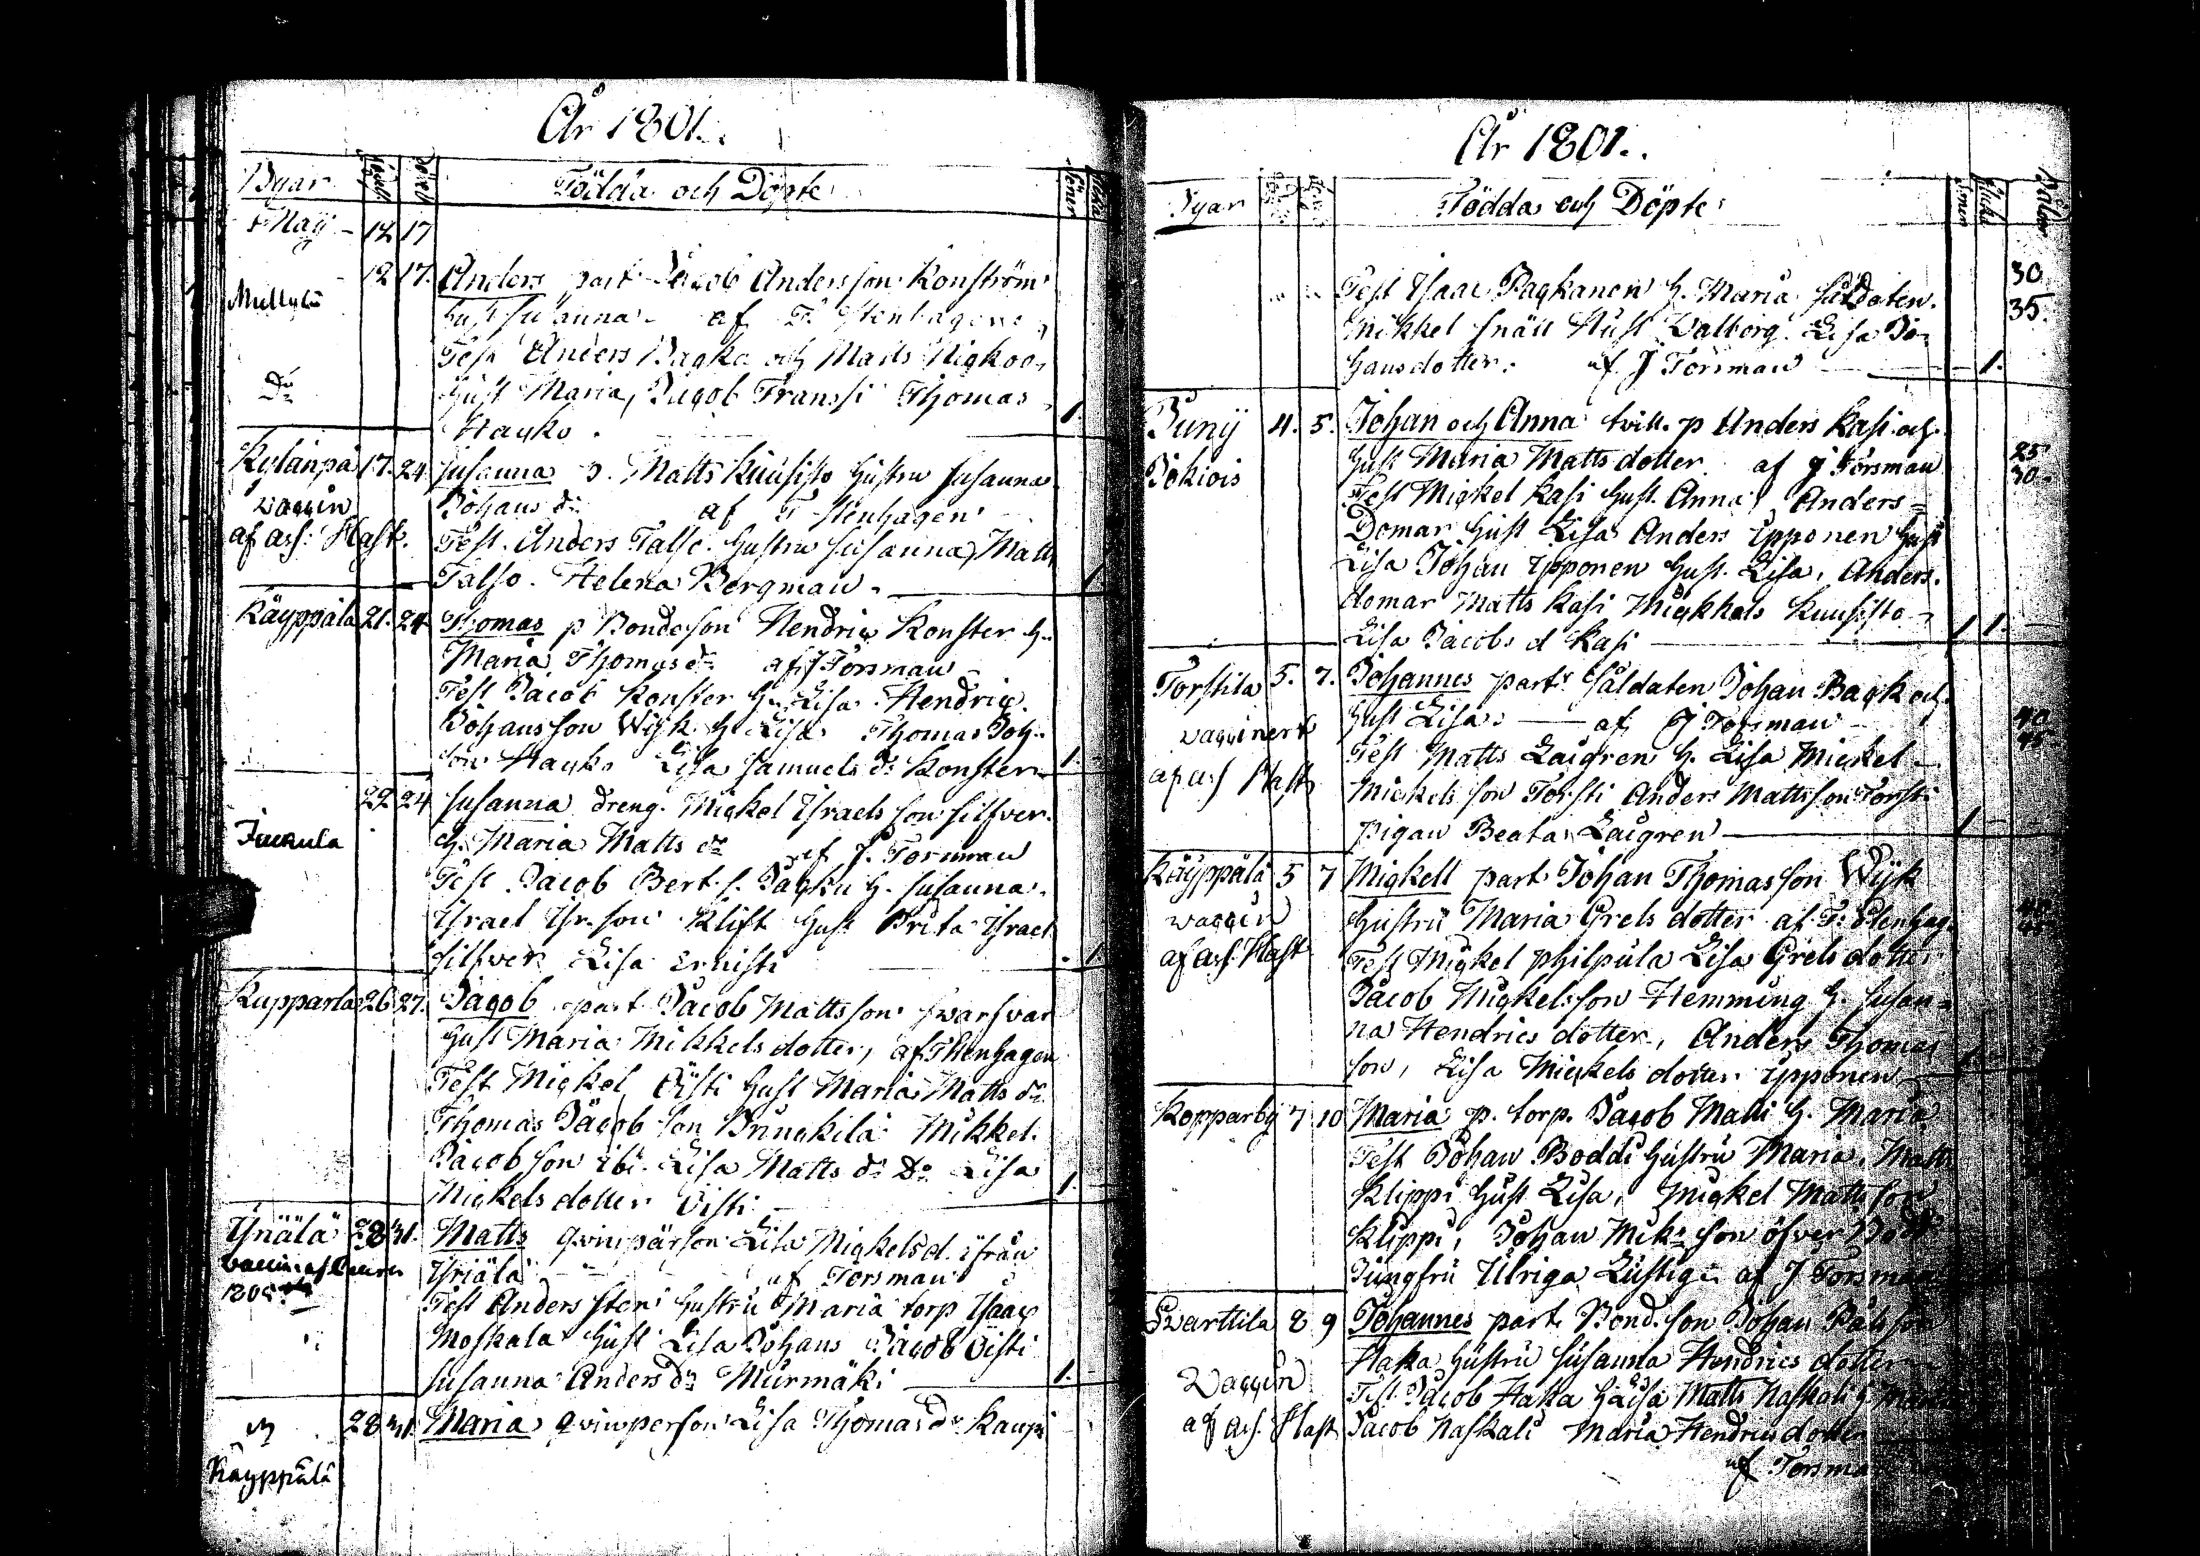 År 1801.
Byar Födda och Döpte
May 12 17
Myllylä 12 17. Anders part Jacob Andersson Konström
hust Susanna af F. Stenhagen
Test Anders Packa och Matts
Do hust Maria, Jacob Franssi Thomas
Hayko 1.
Kylänpä 17. 24. Susanna p. Matts Kuusisto hustru Susanna
vaccin Johans dr af F Stenhagen
af ass: Hast. Test. Anders Talso hustru Susanna, Matts
Talso. Helena Bergman 1
Käyppälä 21. 24 Thomas p Bondeson Hendric Konster h.
Maria Thomas dr af J Forsman
Test Jacob Konster h. Lisa Hendric
Johansson Wijk h Lisa Thomas Joh.
son Hayko Lisa Samuels dr Konster 1.
22 24 Susanna dreng. Mickel Israels son Silfver
Juckula h. Maria Matts dr af J. Forsman
Test Jacob Bert. s. h. Susanna
Israel Isr. son Klift hust Brita Israel
Silfver Lisa 1
Kupparla 26 27. Jacob part Jacob Mattsson
hust Maria Mikkels dotter, af Stenhagen
Test Mickel Öisti hust Maria Matts dr
Thomas Jacob son Mikkel
Jacobson ibi. Lisa Matts dr Do Lisa
Mickels dotter Öisti 1.
28 31. Matts qwinpärson Lisa Mickels d. ifrån
af Forsman
1805 Test Anders Sten hustru Maria torp Isaac
Moskala hust Lisa Johans Jacob Öisti
Susanna Anders dr Murmäki 1.
28 31. Maria qwinperson Lisa Thomas dr Kaupi
Käyppälä
År 1801.
Byar Födda och Döpte
Test Isaac Packanen h. Maria Såldaten 30
Mikkel Snäll Hust Valborg. Lisa Jo- 35.
hansdotter. af J Forsman 1.
Junij 4. 5. Johan och Anna tvill. p Anders Kasi och
Jokiois hust Maria Matts dotter. af J Forsman 25
Test Mickel Kasi hust. Anna, Anders 30.
Domar hust Lisa Anders Ipponen hust
Lisa Johan Ipponen hust. Lisa, Anders.
domar Matts Kasi Mickhels Kuusisto
Lisa Jacobs d Kasi 1 1.
Torstila 5. 7. Johannes part Såldaten Johan Back och
vaccinert hust Lisa af J Forsman 40
af ass Hast Test Matts Laigren h. Lisa Mickel 45
Mickels son Torsti Anders Mattsson Torsti
pigan Beata Laigren 1
Käyppälä 5 7 Mickell part Johan Thomasson Wijk
vaccin hustru Maria Grels dotter af F. Stenhag.
af ass. Hast Test Mickel philpula Lisa Grels dotter
Jacob Mickelsson Hemming h. Susan-
na Hendrics dotter, Anders Thomas
son, Lisa Mickels dotter Ipponen
Kopparby 7 10 Maria p. torp. Jacob Matti h. Maria
Test Johan Boddi hustru Maria, Matts
Klippi hust Lisa, Mickel Mattsson
Klippi, Johan Mik: son öfver
Jungfru Ulriga Lustig af J Forsman
Swarttila 8 9 Johannes part Bond. son Johan
Haka hustru Susanna Hendrics dotter
Vaccin Test. Jacob Haka Matts Naskali h.
af ass. Hast Jacob Naskali Maria Hendrics dotter
af Forsman